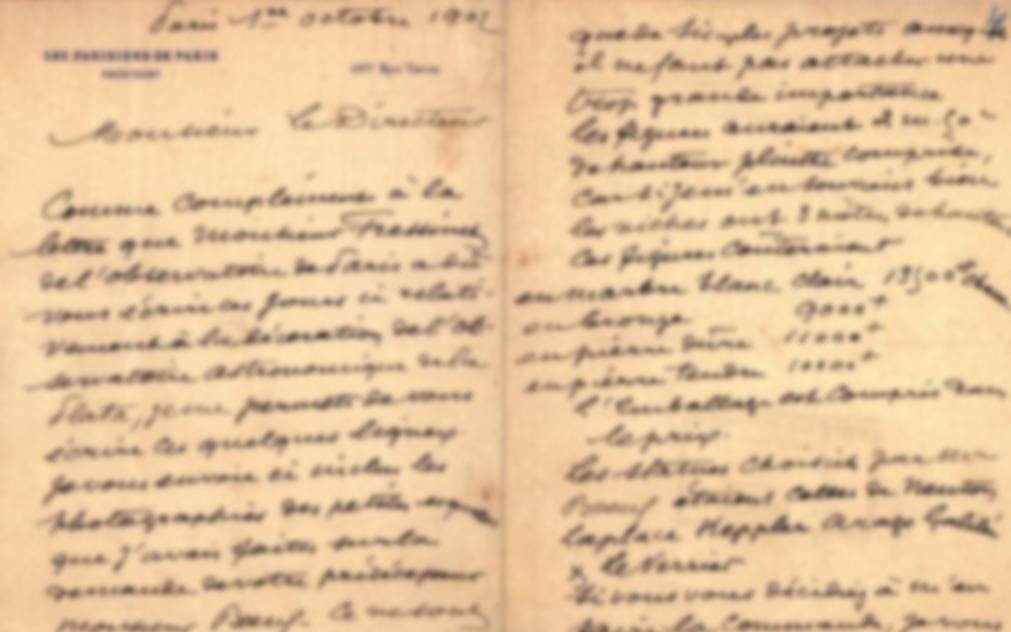 Paris 1er octobre 190
LES PARISIENS DE PARIS
Monsieur Le Directeur
Comme complément à la
lettre que Monsieur
de l'observatoire de Paris a dû
vous écrire ces jours ci relati-
vement à la décoration de l'ob-
servatoire astronomique de la
Plata, je me permets de vous
écrire ces quelques lignes
je vous envoie ci inclus les
photographies des petites
que j'avais faites sur la
demande de votre prédécesseur
Monsieur Ce ne sont
que de simples projets
il ne faut pas attacher une
trop grande importance
les figures auraient 2 m. 50
de hauteur plinthe comprise,
car si je m'en souviens bien
les niches ont 3 mètres de
Ces figures couteraient
en marbre blanc clair
en bronze 9000
en pierre dure 11000
en pierre tendre 10000
l'emballage est compris dans
le prix.
Les statues choisies par
étaient celles de Newton,
Laplace Keppler Arago Galilé
Le Verrier
Si vous vous décidiez à m'en
faire la Commande, je vous